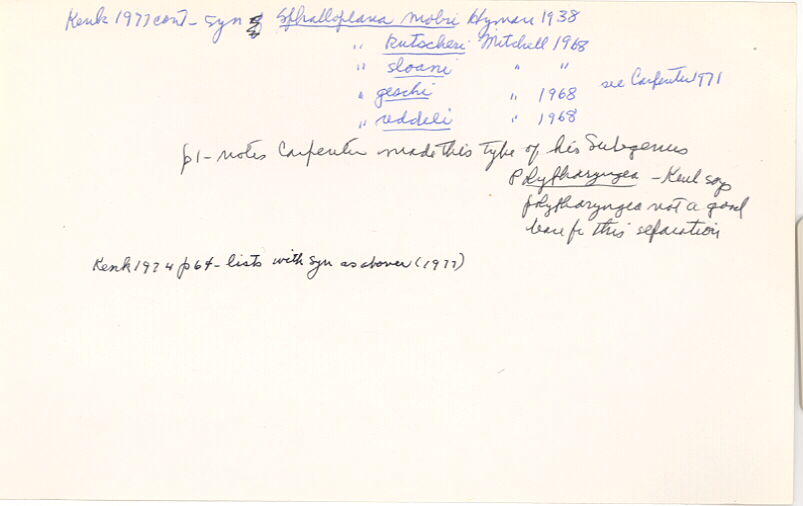 Kenk 1977 cont - syn of Sphalloplana mohri Hyman 1938
" kutscheri Mitchell 1968
" sloani " "
" geschi " 1968 see Carpenter 1971
" reddelli " 1968
p1 - notes Carpenter made this type of his Subgenus
Polypharyngea - Kenk says
polypharyngea not a good
base for this separation
Kenk 1974 p64 - lists with syn as above (1977)